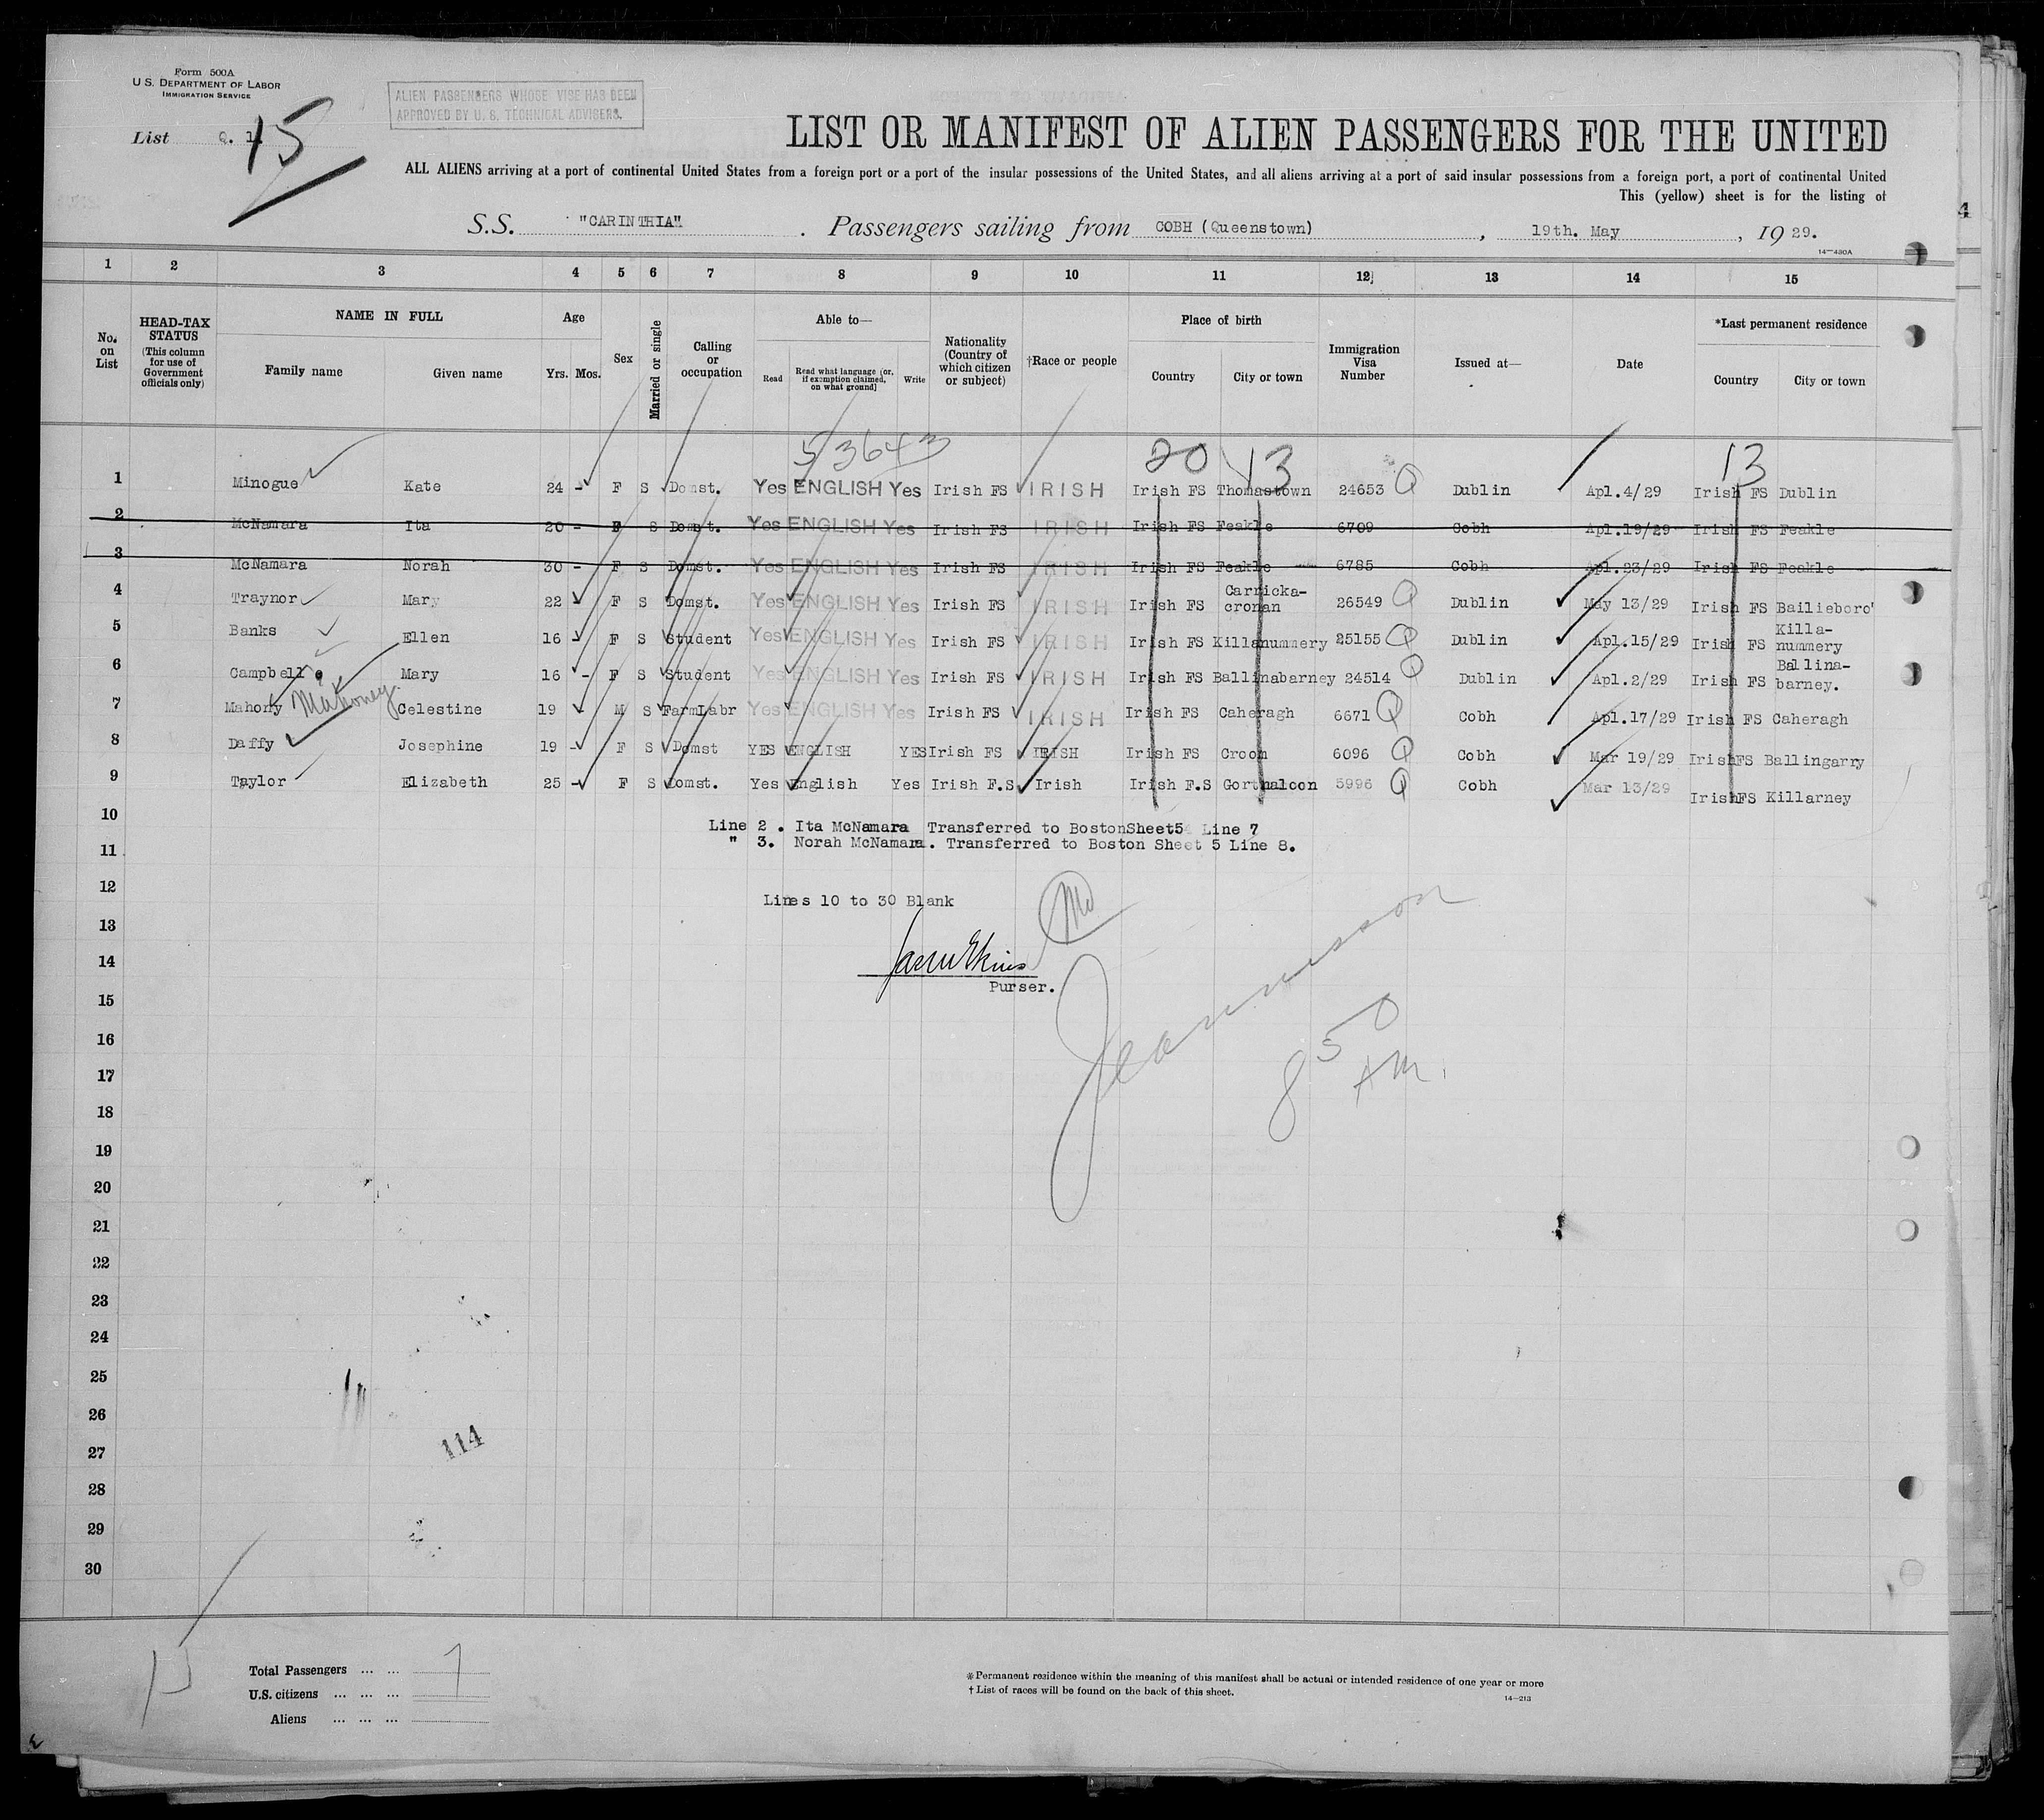 Form 500A
U. S. DEPARTMENT OF LABOR
IMMIGRATION SERVICE
ALIEN PASSENGERS WHOSE VISE HAS BEEN
APPROVED BY U. S. TECHNICAL ADVISERS.
List Q. 1.
15
LIST OR MANIFEST OF ALIEN PASSENGERS FOR THE UNITED
ALL ALIENS arriving at a port of continental United States from a foreign port or a port of the insular possessions of the United States, and all aliens arriving at a port of said insular possessions from a foreign port, a port of continental United
This (yellow) sheet is for the listing of
S.S. "CARINTHIA". Passengers sailing from COBH (Queenstown), 19th. May, 19 29.
14—430A
1 2 3 4 5 6 7 8 9 10 11 12 13 14 15
No. on List
HEAD-TAX STATUS
(This column for use of Government officials only)
NAME IN FULL
Family name Given name
Age
Yrs. Mos.
Sex
Married or single
Calling or occupation
Able to—
Read
Read what language [or, if exemption claimed, on what ground]
Write
Nationality (Country of which citizen or subject)
†Race or people
Place of birth
Country City or town
Immigration Visa Number
Issued at—
Date
*Last permanent residence
Country City or town
53643 20 13 13
1 Minogue Kate 24 - F S Domst. Yes ENGLISH Yes Irish FS IRISH Irish FS Thomastown 24653 Q Dublin Apl.4/29 Irish FS Dublin
2 McNamara Ita 20 - F S Domst. Yes ENGLISH Yes Irish FS IRISH Irish FS Feakle 6709 Cobh Apl.19/29 Irish FS Feakle
3 McNamara Norah 30 - F S Domst. Yes ENGLISH Yes Irish FS IRISH Irish FS Feakle 6785 Cobh Apl.23/29 Irish FS Feakle
4 Traynor Mary 22 - F S Domst. Yes ENGLISH Yes Irish FS IRISH Irish FS Carricka-cronan 26549 Q Dublin May 13/29 Irish FS Bailieboro'
5 Banks Ellen 16 - F S Student Yes ENGLISH Yes Irish FS IRISH Irish FS Killanummery 25155 Q Dublin Apl.15/29 Irish FS Killa-nummery
6 Campbell Mary 16 - F S Student Yes ENGLISH Yes Irish FS IRISH Irish FS Ballinabarney 24514 Q Dublin Apl.2/29 Irish FS Ballina-barney.
7 Mahony Mahoney. Celestine 19 - M S FarmLabr Yes ENGLISH Yes Irish FS IRISH Irish FS Caheragh 6671 Q Cobh Apl.17/29 Irish FS Caheragh
8 Daffy Josephine 19 - F S Domst YES ENGLISH YES Irish FS IRISH Irish FS Croom 6096 Q Cobh Mar 19/29 Irish FS Ballingarry
9 Taylor Elizabeth 25 - F S Domst. Yes English Yes Irish F.S Irish Irish F.S Gortnalcon 5996 Q Cobh Mar 13/29 Irish FS Killarney
10
Line 2 . Ita McNamara Transferred to Boston Sheet 5 Line 7
11
" 3. Norah McNamara. Transferred to Boston Sheet 5 Line 8.
12
Lines 10 to 30 Blank
13
14
Purser.
15
16
850
AM.
17
18
19
20
21
22
23
24
25
26
27
114
28
29
30
Total Passengers ... ... 7
U.S. citizens ... ... ...
Aliens ... ... ...
*Permanent residence within the meaning of this manifest shall be actual or intended residence of one year or more
† List of races will be found on the back of this sheet.
14—213